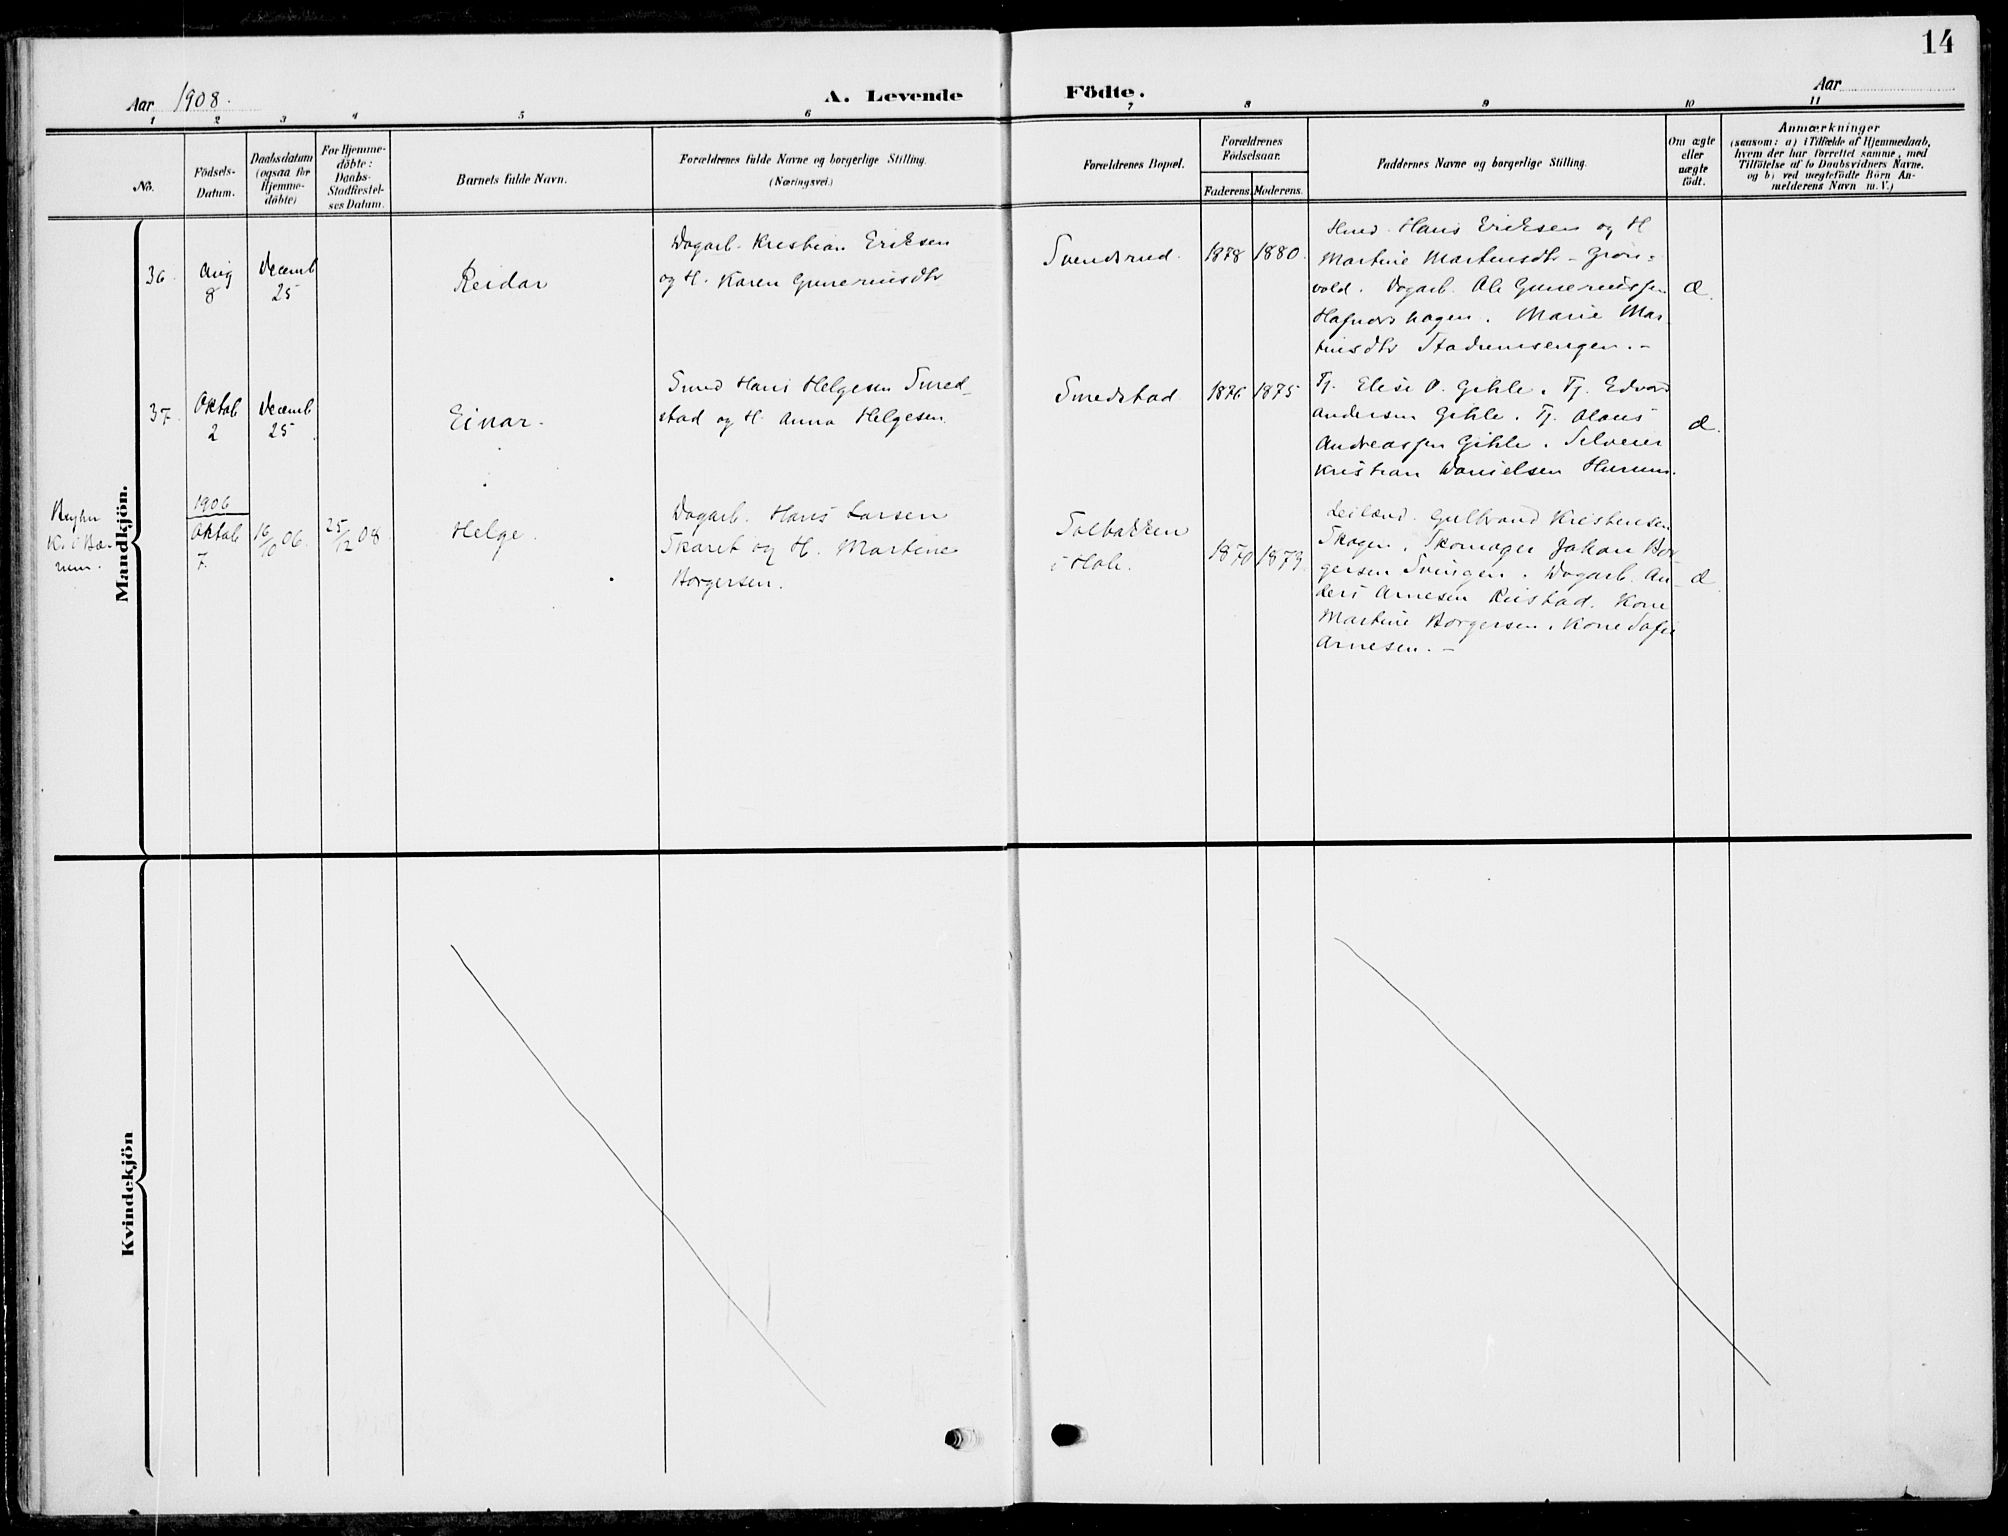 14
Aar 1908.
A. Levende
Födte.
Aar
1
2
3
4
5
6
7
8
9
10
11
No.
Födsels-
Datum.
Daabsdatum
(ogsaa for
Hjemme-
döbte)
For Hjemme-
döbte:
Daabs-
Stadfæstel-
ses Datum.
Barnets fulde Navn.
Forældrenes fulde Navne og borgerlige Stilling.
(Næringsvei.)
Forældrenes Bopæl.
Forældrenes
Födselsaar.
Faderens.
Moderens.
Faddernes Navne og borgerlige Stilling.
Om ægte
eller
uægte
födt.
Anmærkninger
(saasom: a) i Tilfælde af Hjemmedaab,
hvem der har forrettet samme, med
Tilföielse af to Daabsvidners Navne.
og b) ved uægtefödte Börn An-
melderens Navn m. V.)
Mandkjön.
36.
Aug
8
Decemb
25
Reidar
Dagarb. Kristian Eriksen
og H. Karen Guneriusdtr
Svendsrud.
1878
1880.
Hmd. Hans Eriksen og H
Martine Martinsdtr - Grön-
vold. Dagarb. Ole Guneriussen
Hafnorshagen. Marie Mar-
tinsdtr Stadumsengen. -
æ.
37.
Oktob
2
Decemb
25.
Einar.
Smed Hans Helgesen Smed-
stad og H. Anna Helgesen.
Smedstad
1876
1875
Tj. Elise O. Gihle. Tj. Edvard
Andersen Gihle. Tj. Olaus
Andreassen Gihle. Selveier
Kristian Danielsen Hurum.
æ.
K. i Bæ-
rum.
1906
Oktob
7.
16/10 06.
25/12 08.
Helge.
Dagarb. Hans Larsen
Skaret og H. Martine
Borgersen.
Solbakken
i Hole.
1870
1879.
Leilænd. Gulbrand Kristensen
Skogen. Skomager Johan Bor-
gersen Svingen. Dagarb. An-
ders Arnesen Rustad. Kone
Martine Borgersen. Kone Sofie
Arnesen. -
æ.
Kvindekjön